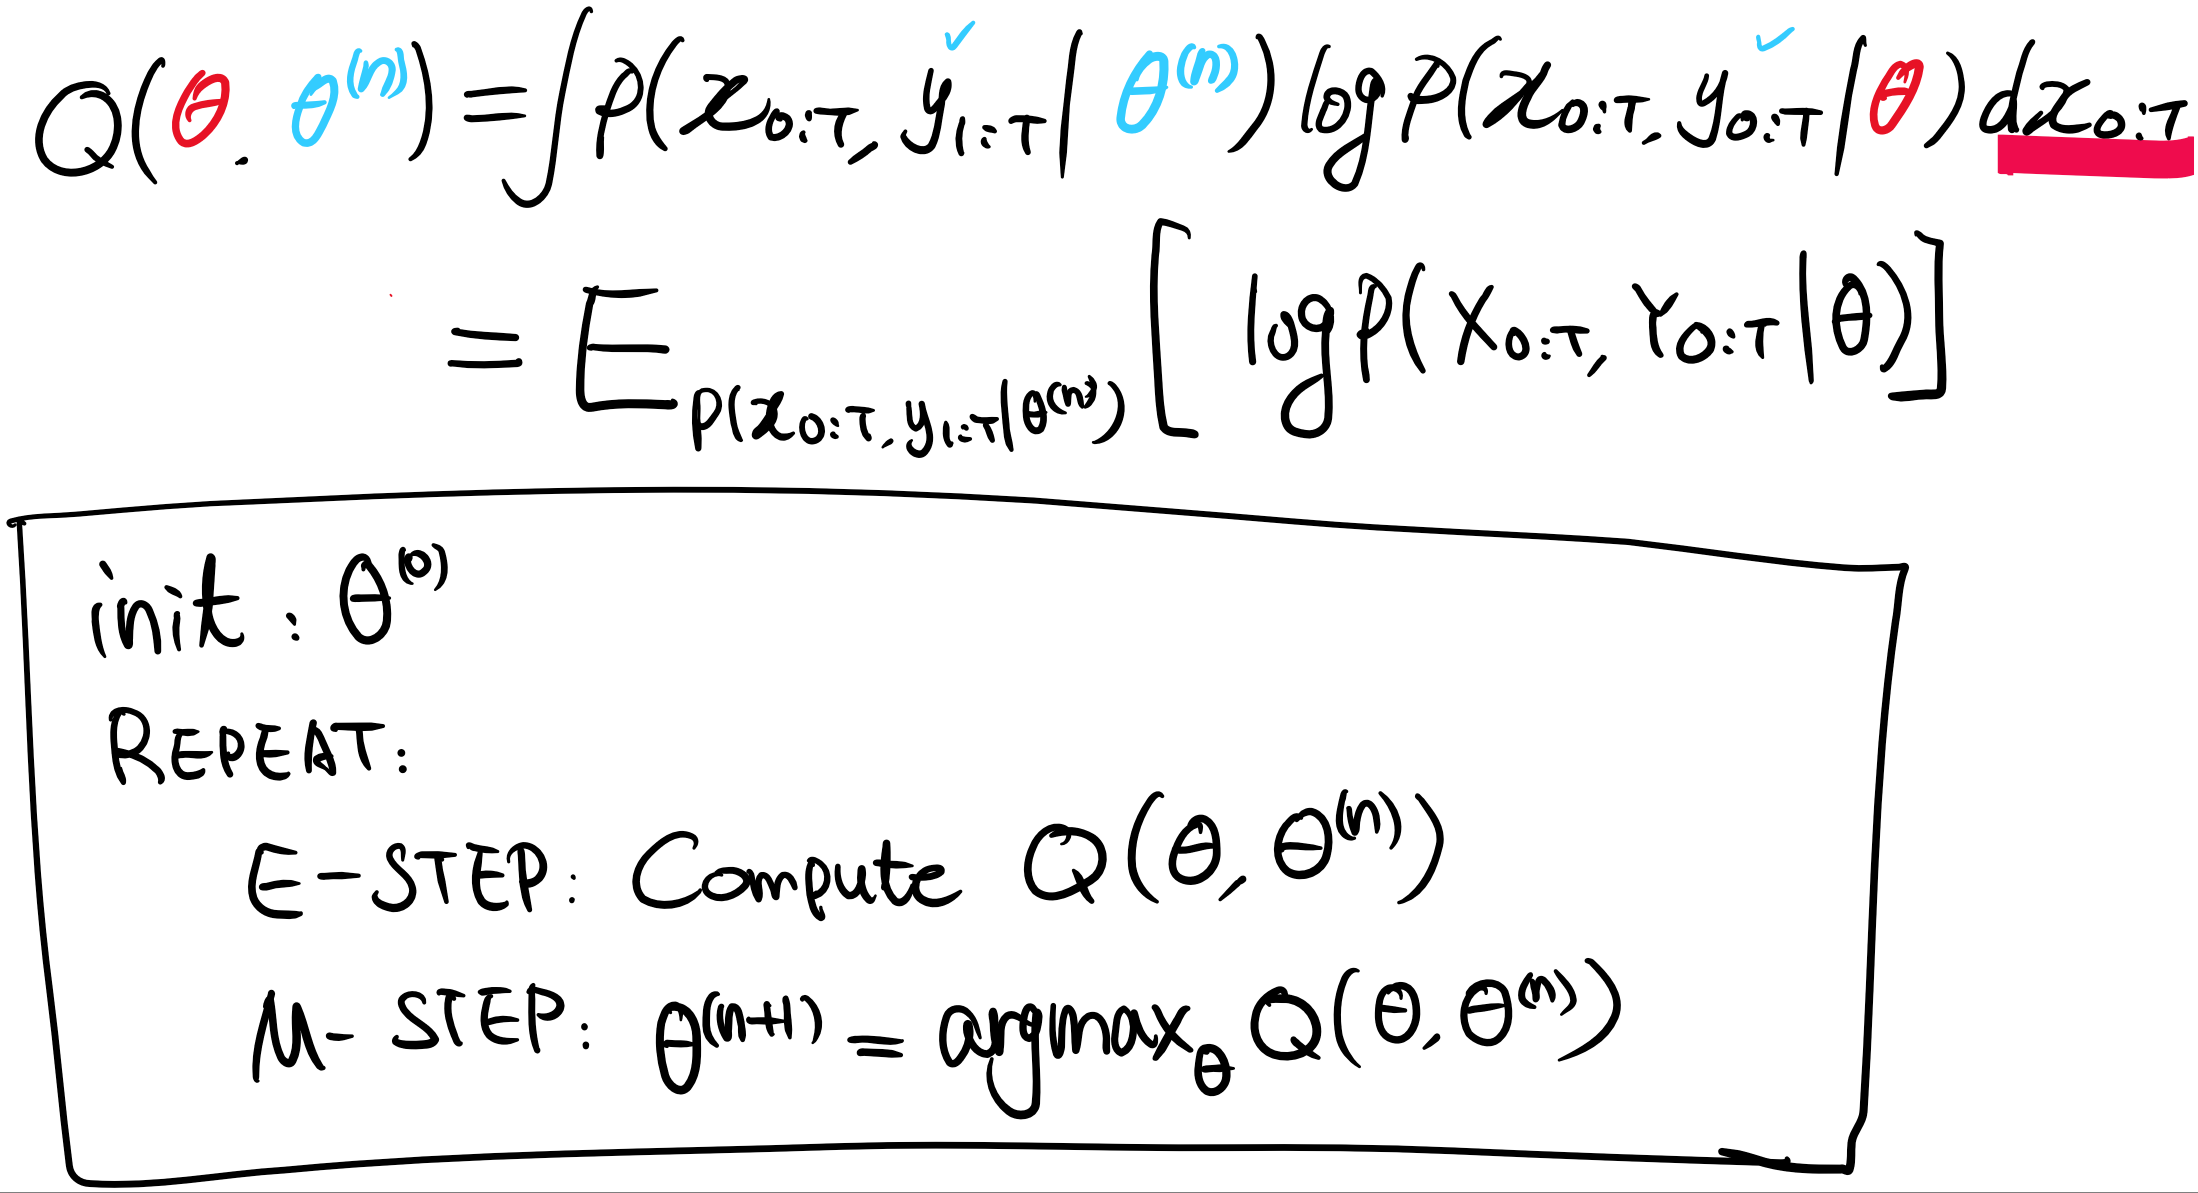 Q(θ, θ⁽ⁿ⁾) = ∫ p(x₀:T, y₁:T | θ⁽ⁿ⁾) log p(x₀:T, y₀:T | θ) dx₀:T
= E_p(x₀:T, y₁:T | θ⁽ⁿ⁾) [ log p(X₀:T, Y₀:T | θ) ]
init : θ⁽⁰⁾
REPEAT:
E-STEP: Compute Q(θ, θ⁽ⁿ⁾)
M-STEP: θ⁽ⁿ⁺¹⁾ = argmax_θ Q(θ, θ⁽ⁿ⁾)